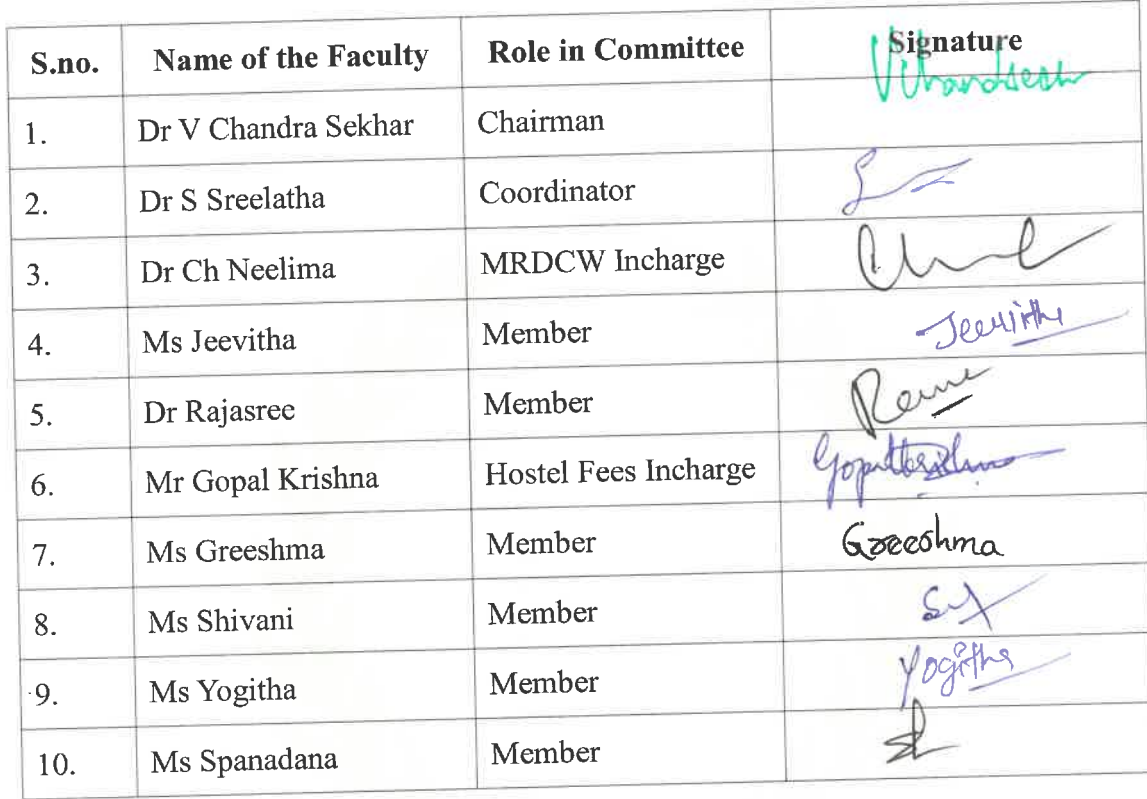 S.no. Name of the Faculty Role in Committee Signature
1. Dr V Chandra Sekhar Chairman
2. Dr S Sreelatha Coordinator
3. Dr Ch Neelima MRDCW Incharge
4. Ms Jeevitha Member Jeevitha
5. Dr Rajasree Member
6. Mr Gopal Krishna Hostel Fees Incharge
7. Ms Greeshma Member Greeshma
8. Ms Shivani Member
9. Ms Yogitha Member Yogitha
10. Ms Spanadana Member